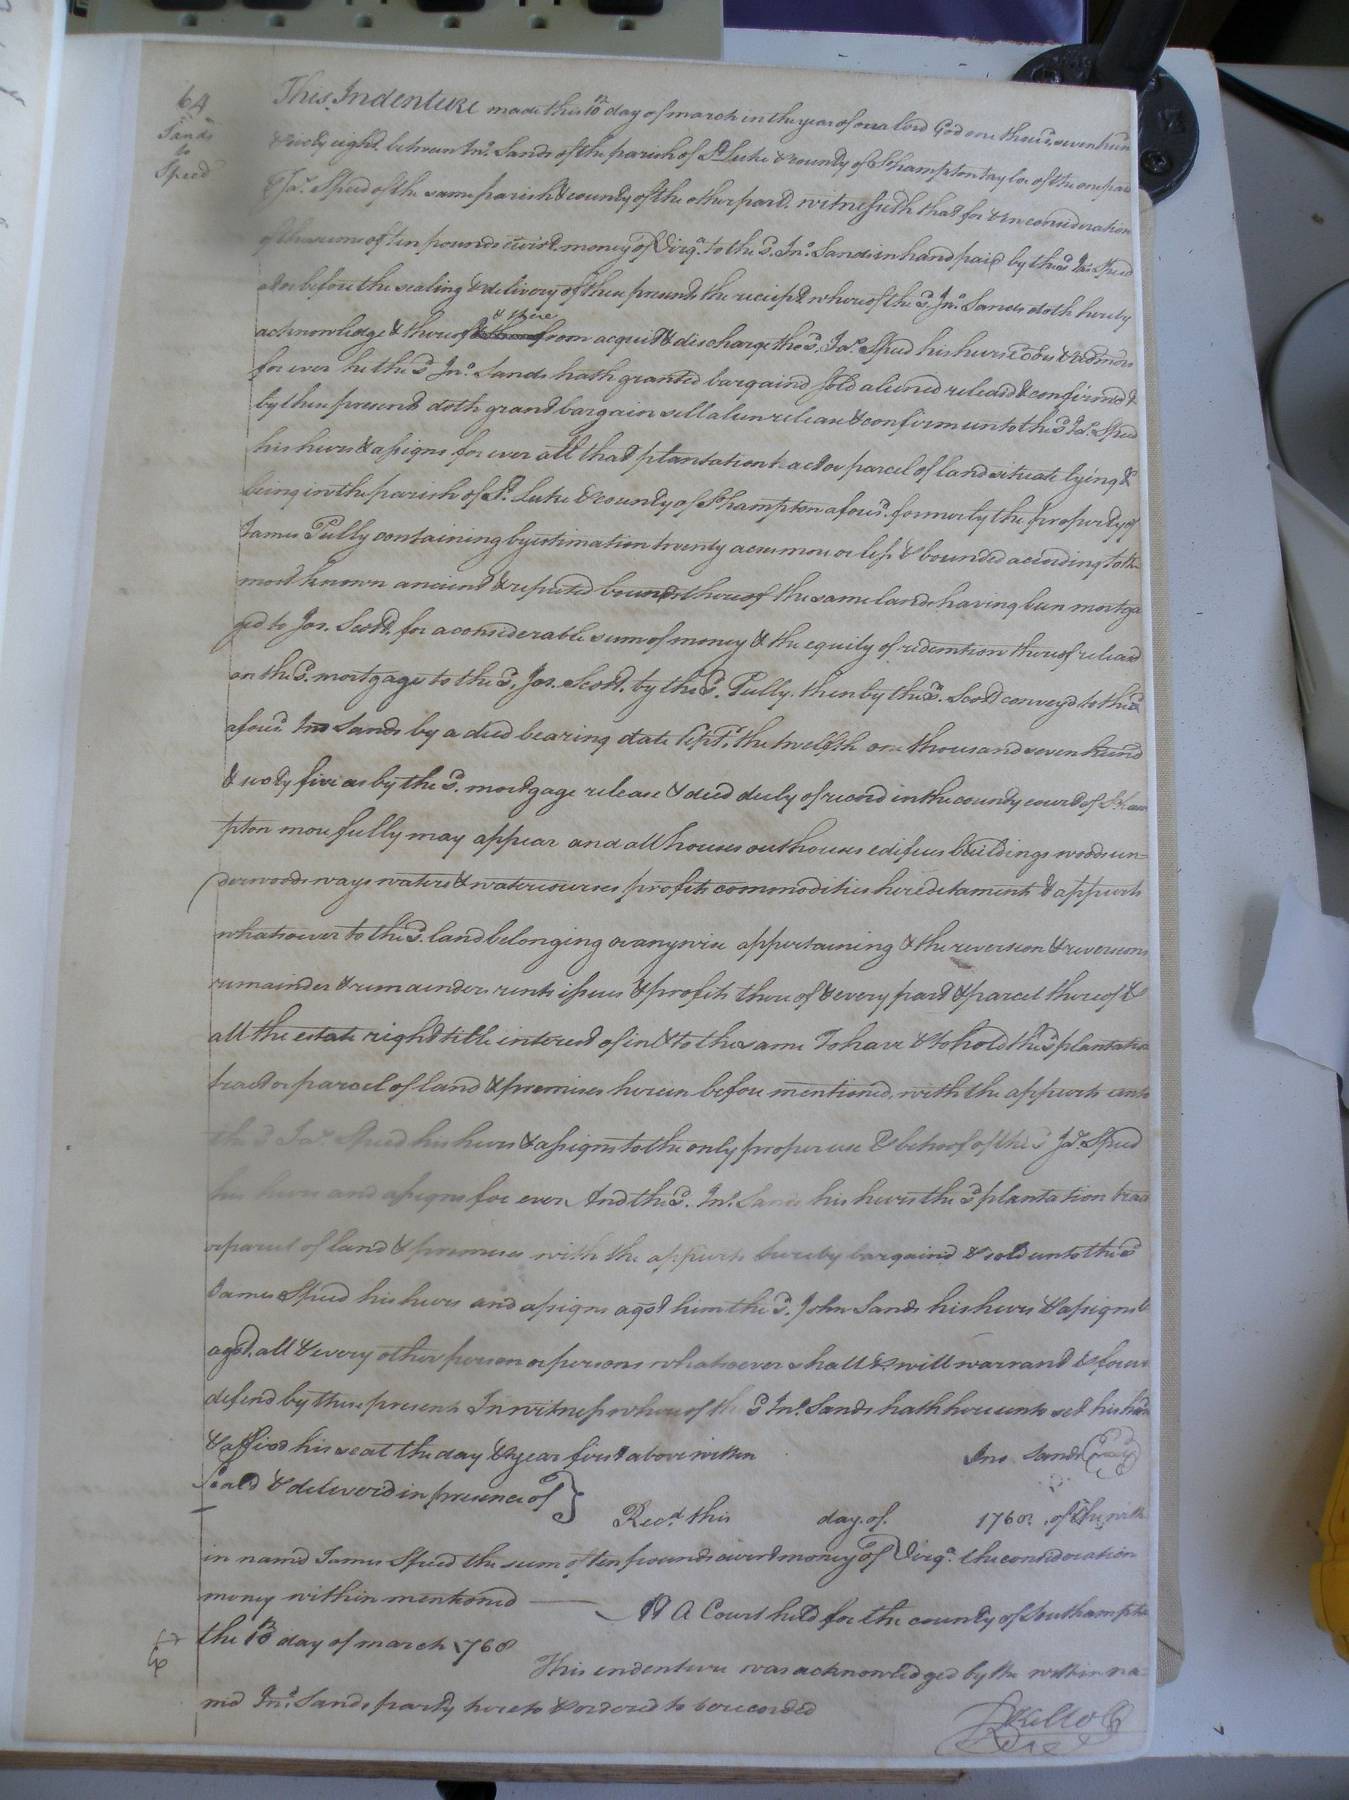 64
Sands
to
Speed
This Indenture made this 10th day of march in the year of our lord God one thous.d seven hun
& sixty eight between Jn.o Sands of the parish of St. Luke & county of S.hampton taylor of the one par
& Ja.s Speed of the same parish & county of the other part. witnesseth that for & in consideration
of the sume of ten pounds curr.t money of Virg.a to the s.d Jn.o Sands in hand paid by the s.d Ja.s Speed
at or before the sealing & delivery of these presents the receipt whereof the s.d Jn.o Sands doth hereby
acknowledge & thereof & there from acquit & discharge the s.d Ja.s Speed his heirs Exōrs & Admōrs
for ever he the s.d Jn.o Sands hath granted bargaind sold aliened releasd & confirmed &
by these presents doth grant bargain sell alien release & confirm unto the s.d Ja.s Speed
his heirs & assigns for ever all that plantation tract or parcel of land situate lying &
being in the parish of St. Luke & county of S.hampton afores.d formerly the property of
James Pully containing by estimation twenty acres more or less & bounded according to the
most known ancient & reputed bounds thereof the same lands having been mortga
ged to Jas. Scott, for a considerable sum of money & the equity of redemtion thereof releasd
on the s.d mortgage to the s.d Jas. Scott, by the s.d Pully. then by the s.d Scott conveyd to the s.d
afores.d Jn.o Sands by a deed bearing date Sept.r the twelfth one thousand seven hund
& sixty five as by the s.d mortgage release & deed duly of record in the county court of S.ham
pton more fully may appear and all houses outhouses edifices buildings woods un=
derwoods ways waters & watercourses profits commodities hereditaments & appurts
whatsoever to the s.d land belonging or anywise appertaining & the reversion & reversions
remainder & remainders rents issues & profits thereof & every part & parcel thereof &
all the estate right title interest of in & to the same To have & to hold the s.d plantation
tract or parcel of land & premises herein before mentioned, with the appurts unto
the s.d Ja.s Speed his heirs & assigns to the only proper use & behoof of the s.d Ja.s Speed
his heirs and assigns for ever And the s.d Jn.o Sands his heirs the s.d plantation trac
or parcel of land & premises with the appurts hereby bargaind & sold unto the s.d
James Speed his heirs and assigns ag.st him the s.d John Sands his heirs & assigns &
ag.st all & every other person or persons whatsoever shall & will warrant & forever
defend by these presents In witness whereof the s.d Jn.o Sands hath hereunto set his hand
& affixd his seal the day & year first above written Jno Sands (Seal)
Seald & deliverd in presence of }
Rec.d this day of 1768. of the with
in namd James Speed the sum of ten pounds curr.t money of Virg.a the consideration
money within mentioned — At A Court held for the county of Southampton
the 10th day of march 1768
This indenture was acknowledged by the within na=
med Jn.o Sands party hereto & ordered to be recorded